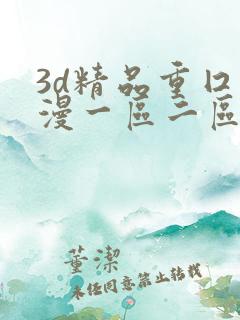 3d精品重口
漫一區二區
董潔
未任同意禁止转载